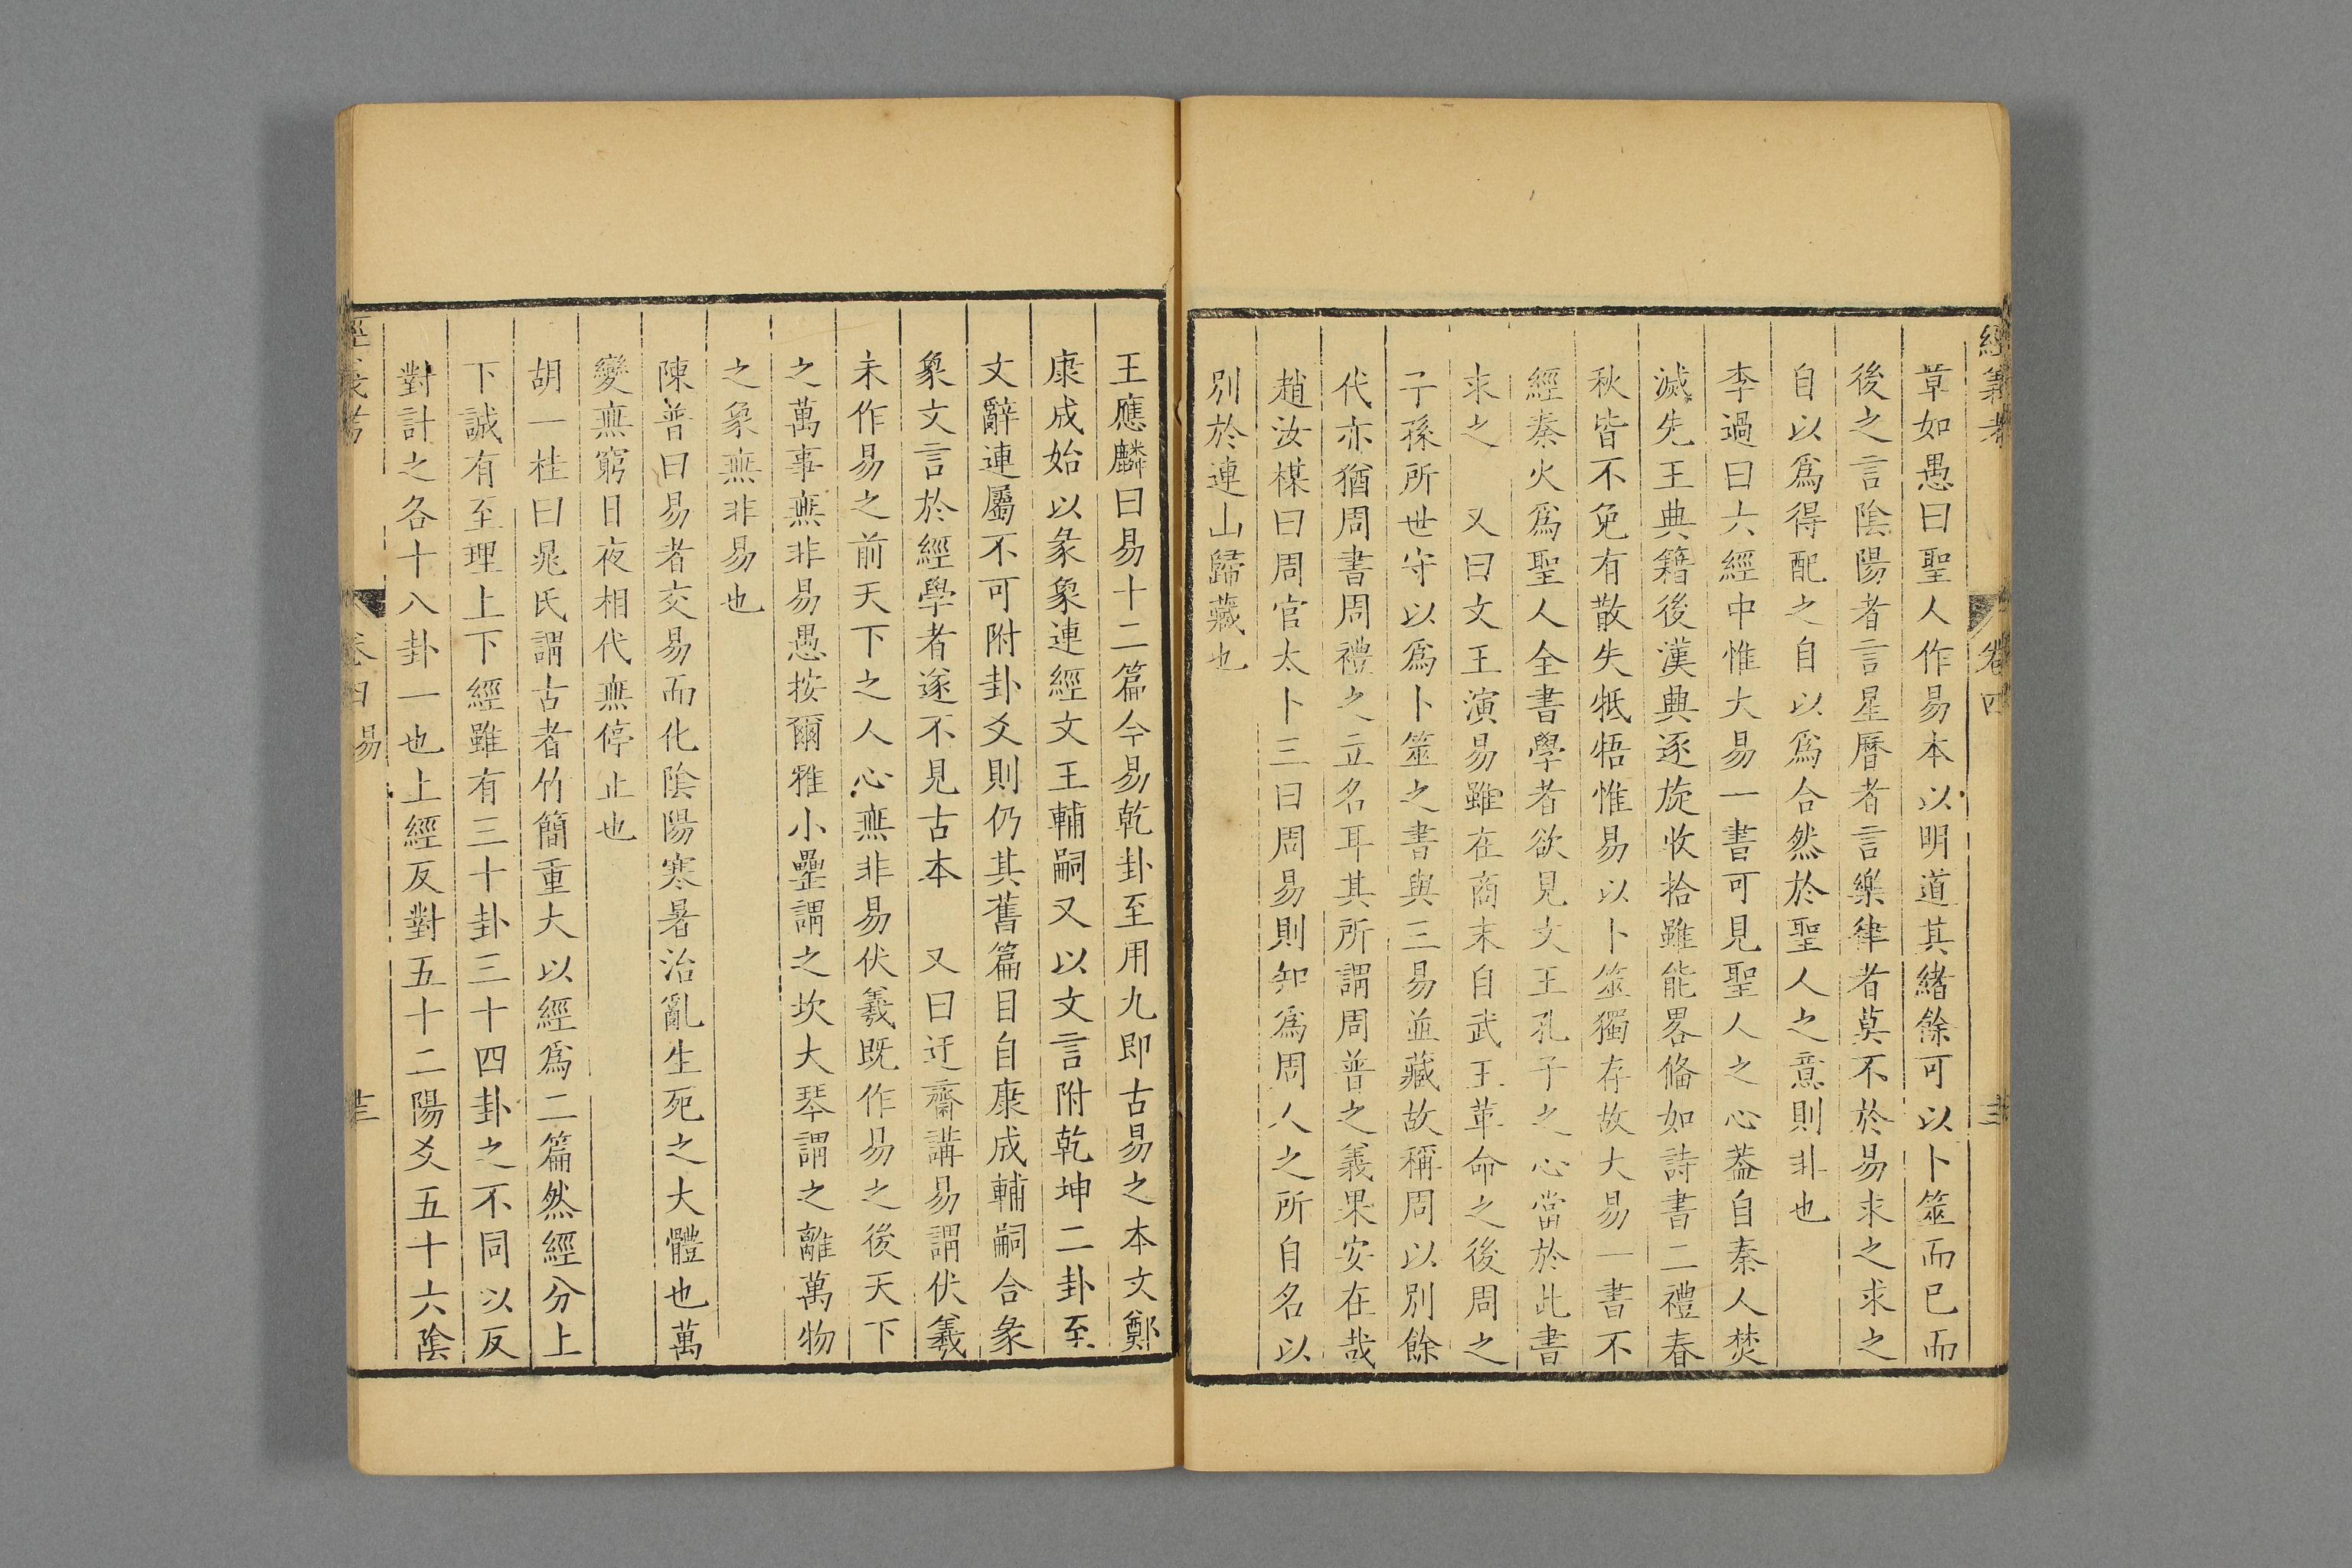 經義考 卷四
草如愚曰聖人作易本以明道其緒餘可以卜筮而已而
後之言陰陽者言星曆者言樂律者莫不於易求之求之
自以爲得配之自以爲合然於聖人之意則非也
李過曰六經中惟大易一書可見聖人之心葢自秦人焚
滅先王典籍後漢興逐旋收拾雖能畧偹如詩書二禮春
秋皆不免有散失牴牾惟易以卜筮獨存故大易一書不
經秦火爲聖人全書學者欲見文王孔子之心當於此書
求之　又曰文王演易雖在商末自武王革命之後周之
子孫所世守以爲卜筮之書與三易並藏故稱周以別餘
代亦猶周書周禮之立名耳其所謂周普之義果安在哉
趙汝楳曰周官太卜三曰周易則知爲周人之所自名以
別於連山歸藏也
王應麟曰易十二篇今易乾卦至用九即古易之本文鄭
康成始以彖象連經文王輔嗣又以文言附乾坤二卦至
文辭連屬不可附卦爻則仍其舊篇目自康成輔嗣合彖
象文言於經學者遂不見古本　又曰迂齋講易謂伏羲
未作易之前天下之人心無非易伏羲既作易之後天下
之萬事無非易愚按爾雅小罍謂之坎大琴謂之離萬物
之象無非易也
陳普曰易者交易而化陰陽寒暑治亂生死之大體也萬
變無窮日夜相代無停止也
胡一桂曰晁氏謂古者竹簡重大以經爲二篇然經分上
下誠有至理上下經雖有三十卦三十四卦之不同以反
對計之各十八卦一也上經反對五十二陽爻五十六陰
經義考 卷四 易